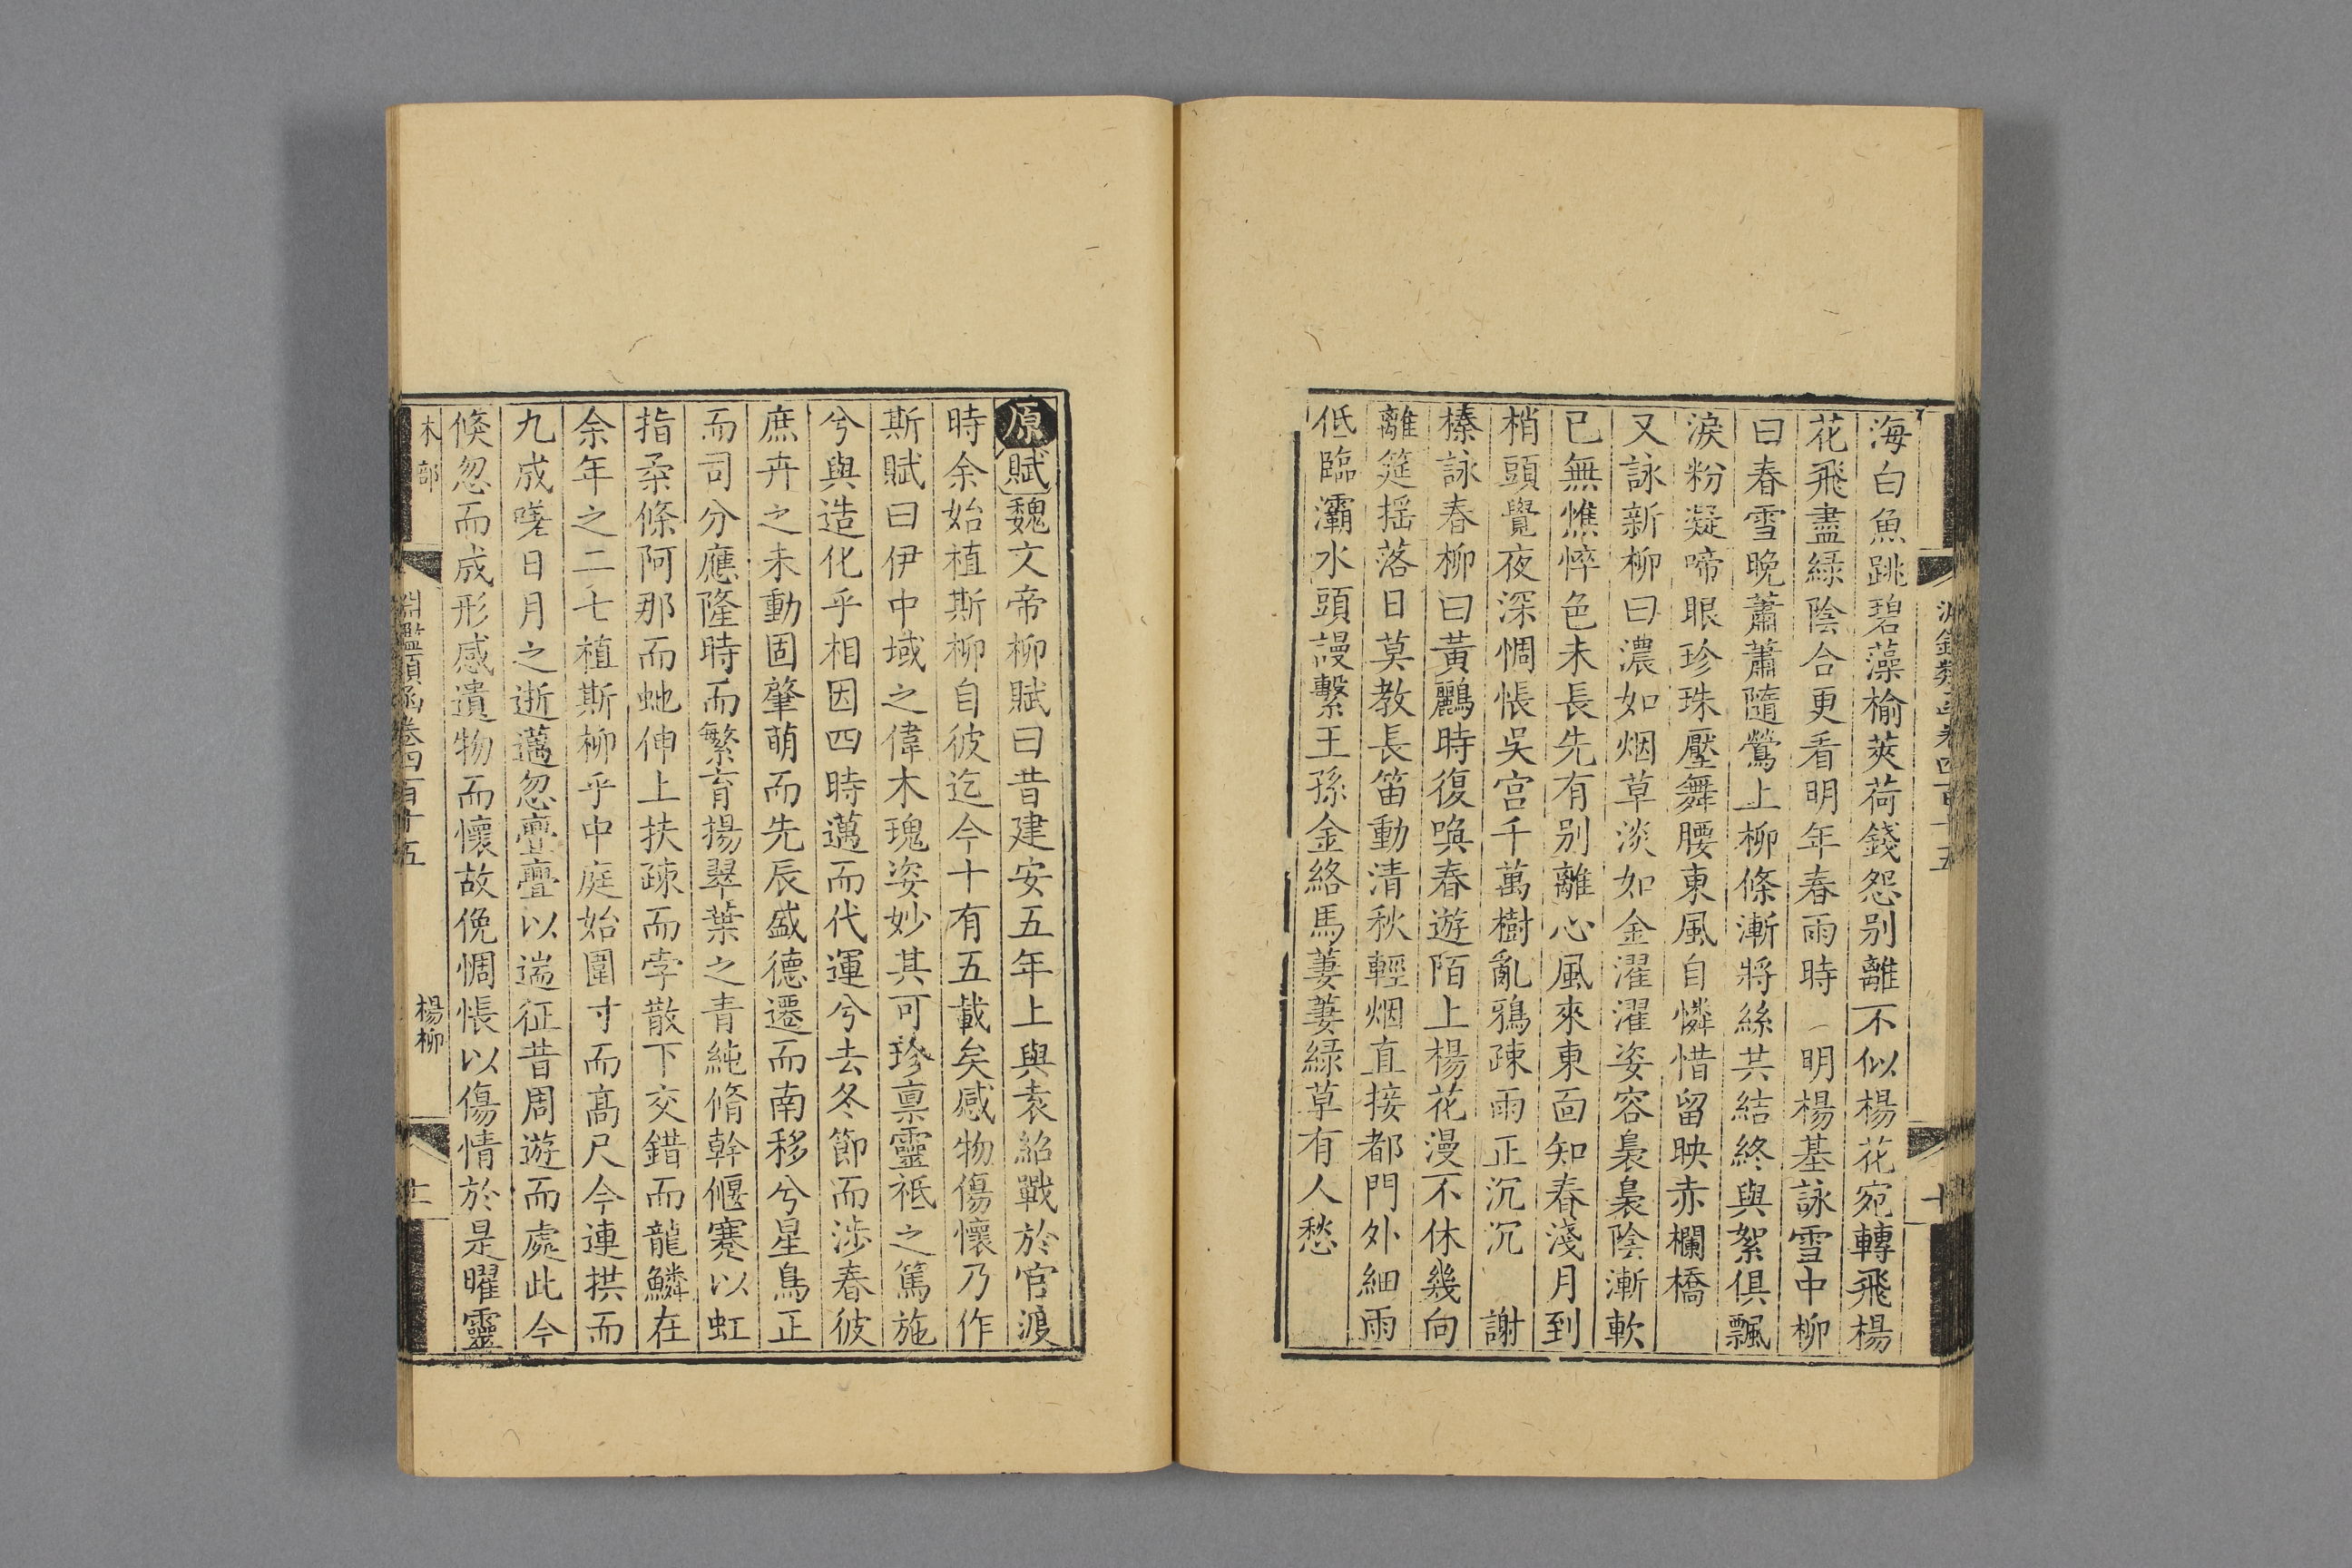 海白魚跳碧藻榆莢荷錢怨别離不似楊花宛轉飛楊
花飛盡綠陰合更看明年春雨時　明楊基詠雪中柳
曰春雪晚蕭蕭隨鶯上柳條漸將絲共結終與絮俱飄
淚粉凝啼眼珍珠壓舞腰東風自憐惜留映赤欄橋
又詠新柳曰濃如烟草淡如金濯濯姿容裊裊陰漸軟
已無憔悴色未長先有别離心風來東面知春淺月到
梢頭覺夜深惆悵吳宫千萬樹亂鴉疎雨正沉沉　謝
榛詠春柳曰黄鸝時復喚春遊陌上楊花漫不休幾向
離筵摇落日莫教長笛動清秋輕烟直接都門外細雨
低臨灞水頭謾繫王孫金絡馬萋萋綠草有人愁
原賦魏文帝柳賦曰昔建安五年上與袁紹戰於官渡
時余始植斯柳自彼迄今十有五載矣感物傷懷乃作
斯賦曰伊中域之偉木瑰姿妙其可珍禀靈祗之篤施
兮與造化乎相因四時邁而代運兮去冬節而涉春彼
庶卉之未動固肇萌而先辰盛德遷而南移兮星鳥正
而司分應隆時而繁育揚翠葉之青純脩幹偃蹇以虹
指柔條阿那而虵伸上扶疎而孛散下交錯而龍鱗在
余年之二七植斯柳乎中庭始圍寸而高尺今連拱而
九成嗟日月之逝邁忽亹亹以遄征昔周遊而處此今
倏忽而成形感遺物而懷故俛惆悵以傷情於是曜靈
木部　淵鑑類函卷四百十五　楊柳